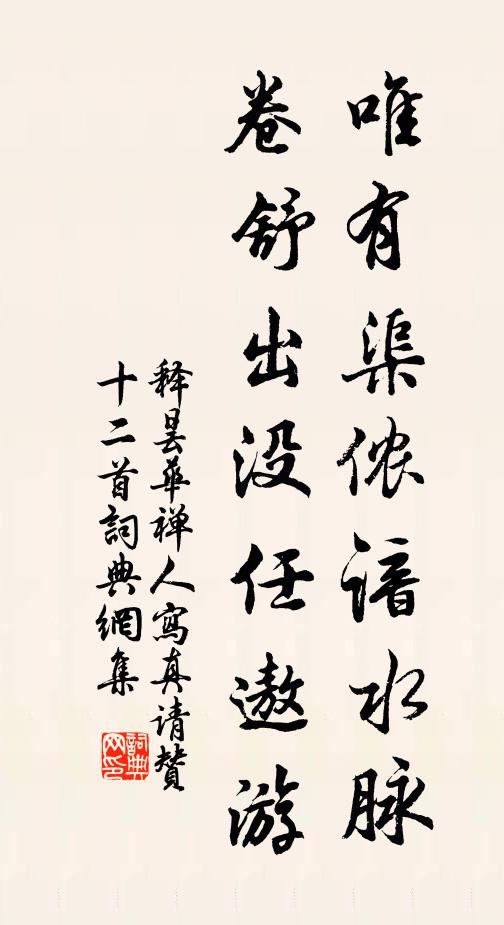 唯有渠侬谙水脉
卷舒出没任遨游
释昙华禅人写真请赞
十二首詞典網集
詞典
网印